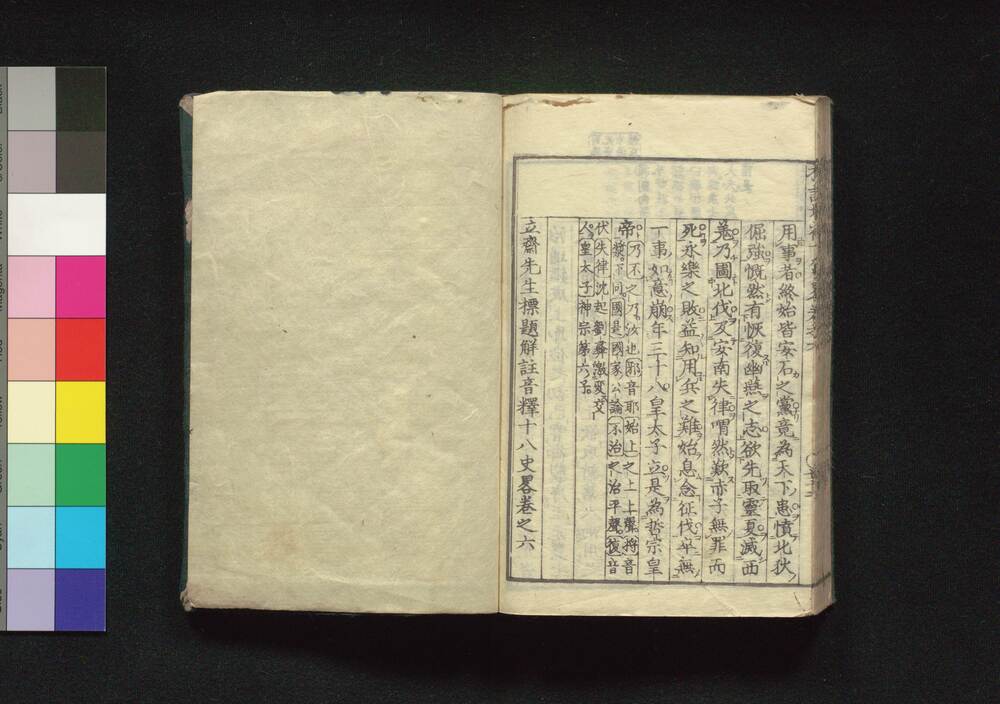 用事者終始皆安石之黨竟為天下患憤北狄
倔強慨然有恢復幽燕之志欲先取靈夏滅西
羌乃圖北伐及安南失律喟然歎赤子無罪而
死永樂之敗益知用兵之難始息念征伐卒無
一事如意崩年三十八皇太子立是為哲宗皇
帝
乃不之乃汝也 邪音耶 始上之上上聲 將音
獎下同 國是國家公論 不治之治平聲 復音
伏 失律沈起劉彝激変交
人 皇太子神宗第六子
立齋先生標題解註音釋十八史畧卷之六